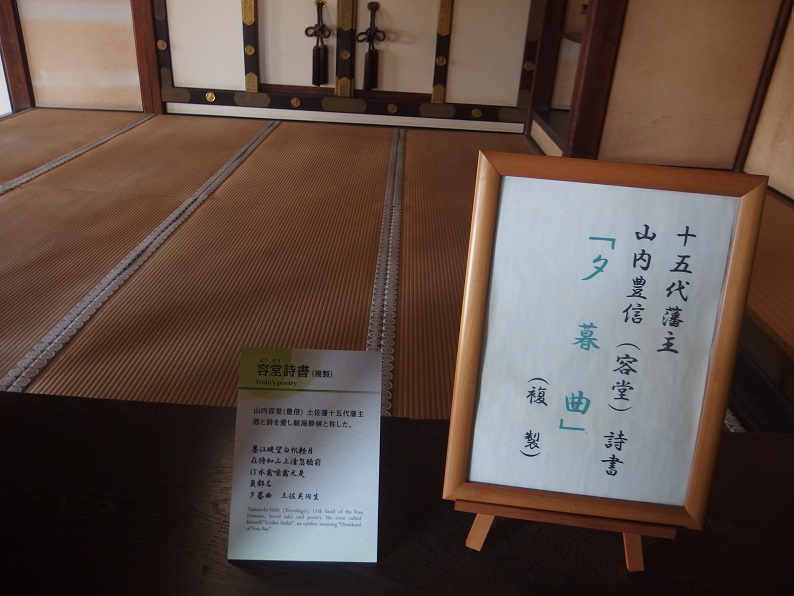 十五代藩主
山内豊信（容堂）詩書
「夕暮曲」
（複製）
よう どう
容堂詩書(複製)
Yodo's poetry
山内容堂(豊信) 土佐藩十五代藩主
酒と詩を愛し鯨海酔候と称した。
墨江晩望白帆軽月
在待知山上清忽聴前
汀水禽喚禽元是
員都名
夕暮曲 土佐
Yamauchi Yodo (Toyoshige), 15th head of the Tosa
Domain, loved sake and poetry. He even called
himself "Geikai Suiko", an epithet meaning "Drunkard
of Tosa Bay".